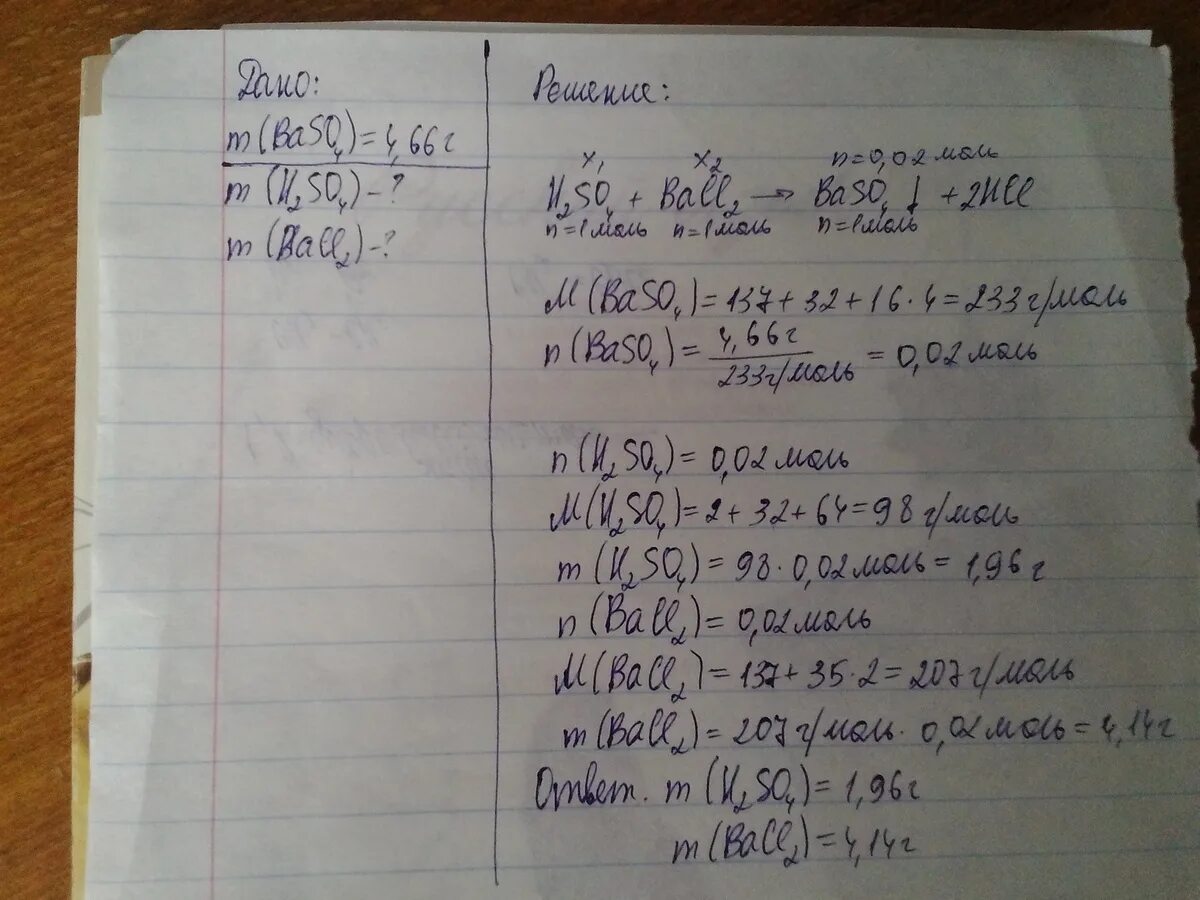 Дано:
m(BaSO₄)=4,66г
m(H₂SO₄)-?
m(BaCl₂)-?
Решение:
x₁ x₂ n=0,02 моль
H₂SO₄ + BaCl₂ → BaSO₄↓ + 2HCl
n=1моль n=1моль n=1моль
M(BaSO₄)=137+32+16·4=233г/моль
n(BaSO₄)= 4,66г / 233г/моль = 0,02 моль
n(H₂SO₄)=0,02 моль
M(H₂SO₄)=2+32+64=98 г/моль
m(H₂SO₄)=98·0,02моль=1,96г
n(BaCl₂)=0,02моль
M(BaCl₂)=137+35·2=207г/моль
m(BaCl₂)=207г/моль·0,02моль=4,14г
Ответ. m(H₂SO₄)=1,96г
m(BaCl₂)=4,14г